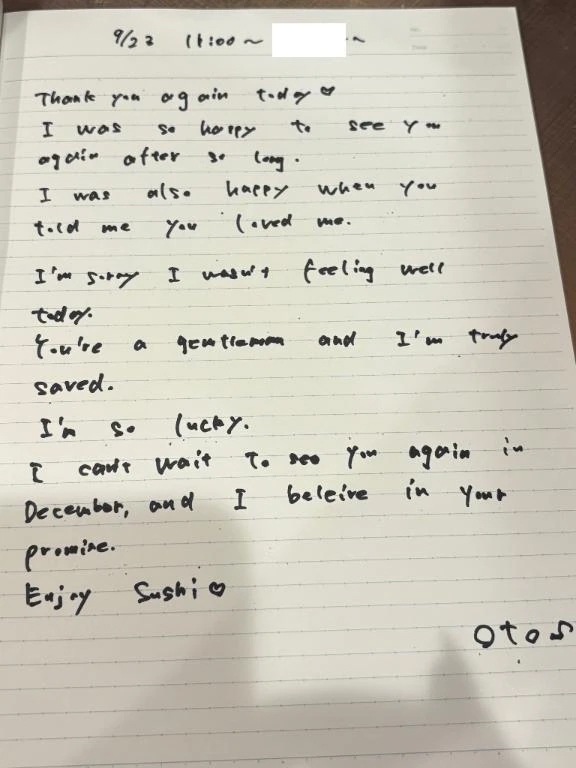 9/23 11:00~ ~
Thank you again today ♡
I was so happy to see you
again after so long.
I was also happy when you
told me you loved me.
I'm sorry I wasn't feeling well
today.
You're a gentleman and I'm truly
saved.
I'm so lucky.
I can't wait to see you again in
December, and I beleive in your
promise.
Enjoy Sushi ♡